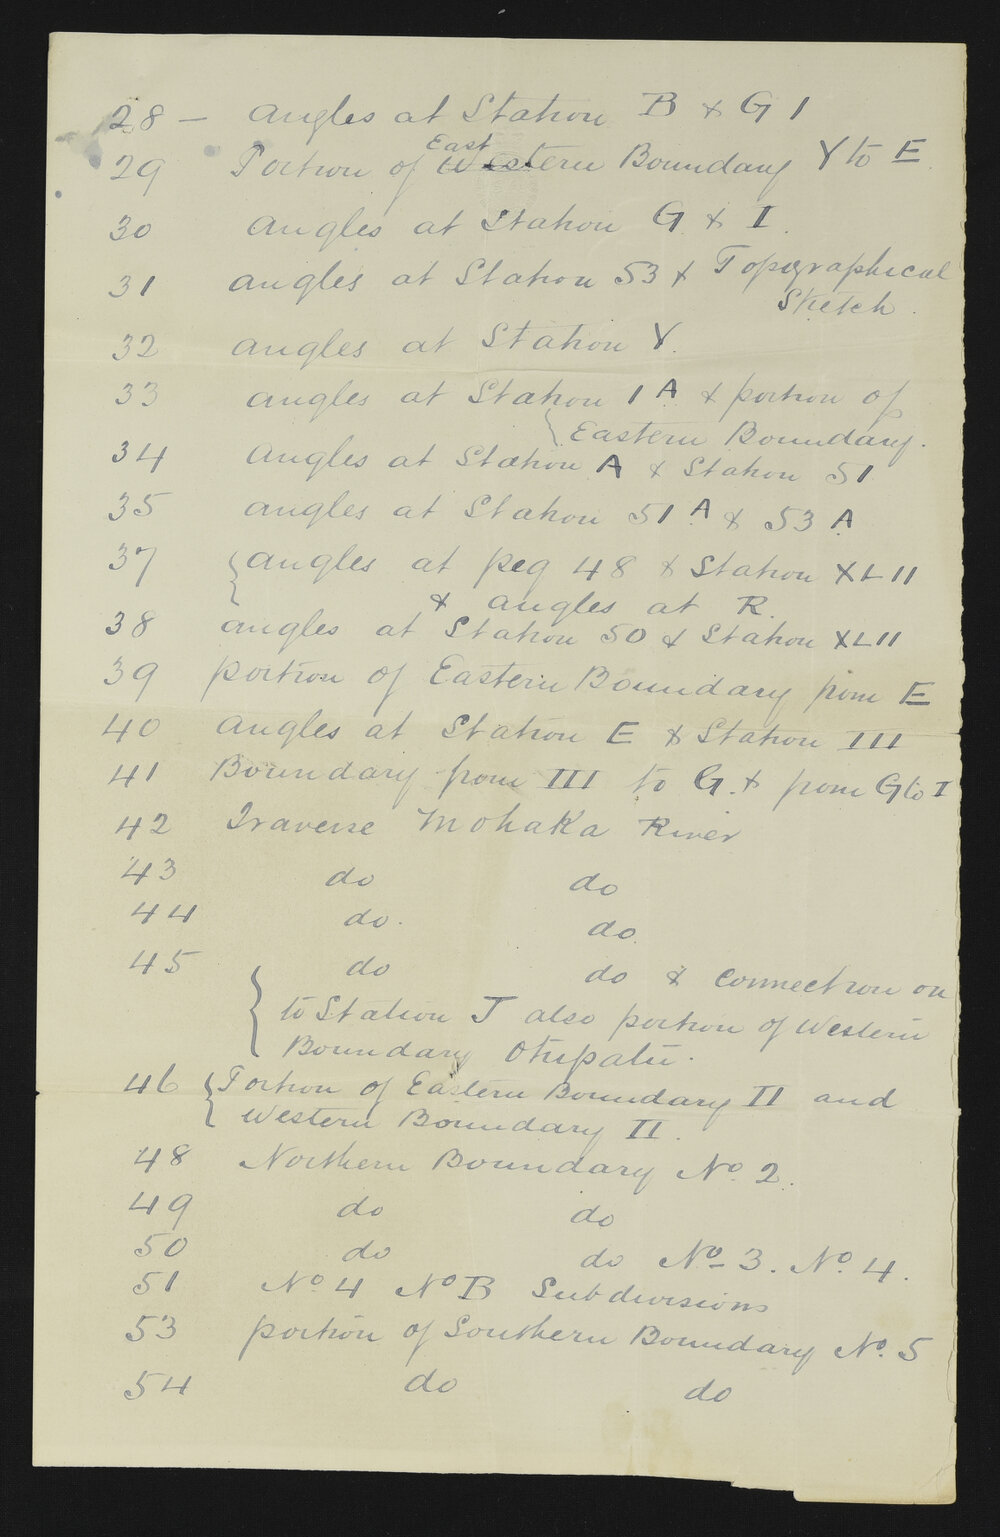 28 – angles at Station B & G 1
East
29 Portion of Western Boundary Y to E
30 angles at Station G & I
31 angles at Station 53 & Topographical
Sketch.
32 angles at Station Y.
33 angles at Station 1 A & portion of
Eastern Boundary.
34 angles at Station A & Station 51
35 angles at Station 51 A & 53 A
37 angles at peg 48 & Station XLII
& angles at R.
38 angles at Station 50 & Station XLII
39 portion of Eastern Boundary from E
40 angles at Station E & Station III
41 Boundary from III to G. & from G to I
42 Traverse Mohaka River
43 do do
44 do. do.
45 do do & connection on
to Station J also portion of Western
Boundary Otupatu.
46 Portion of Eastern Boundary II and
Western Boundary II.
48 Northern Boundary No. 2.
49 do do
50 do do No. 3. No. 4.
51 No. 4 No B Subdivisions
53 portion of Southern Boundary No. 5
54 do do